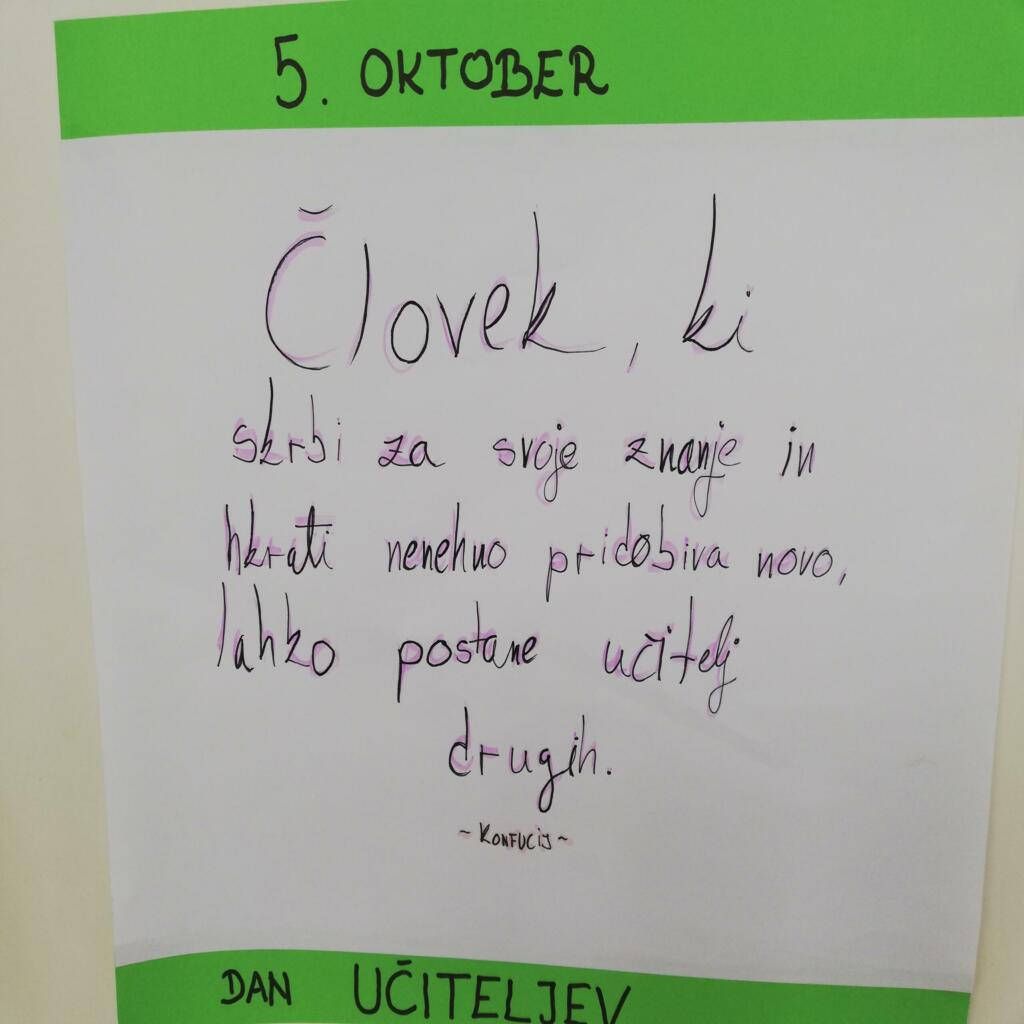 5. OKTOBER
Človek, ki
skrbi za svoje znanje in
hkrati nenehno pridobiva novo,
lahko postane učitelj
drugih.
~ KONFUCIJ ~
DAN UČITELJEV